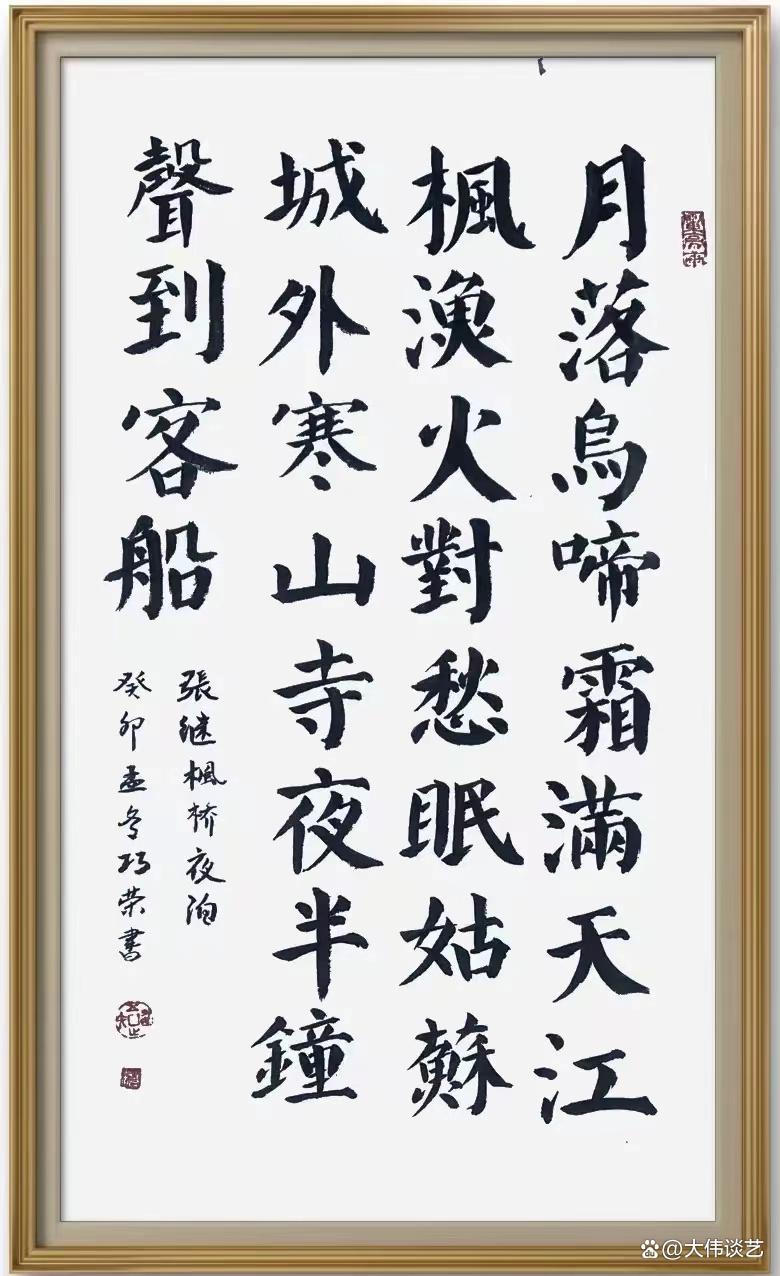 月落烏啼霜滿天江
楓漁火對愁眠姑蘇
城外寒山寺夜半鐘
聲到客船
張继楓桥夜泊
癸卯孟冬巧荣書
@大伟谈艺